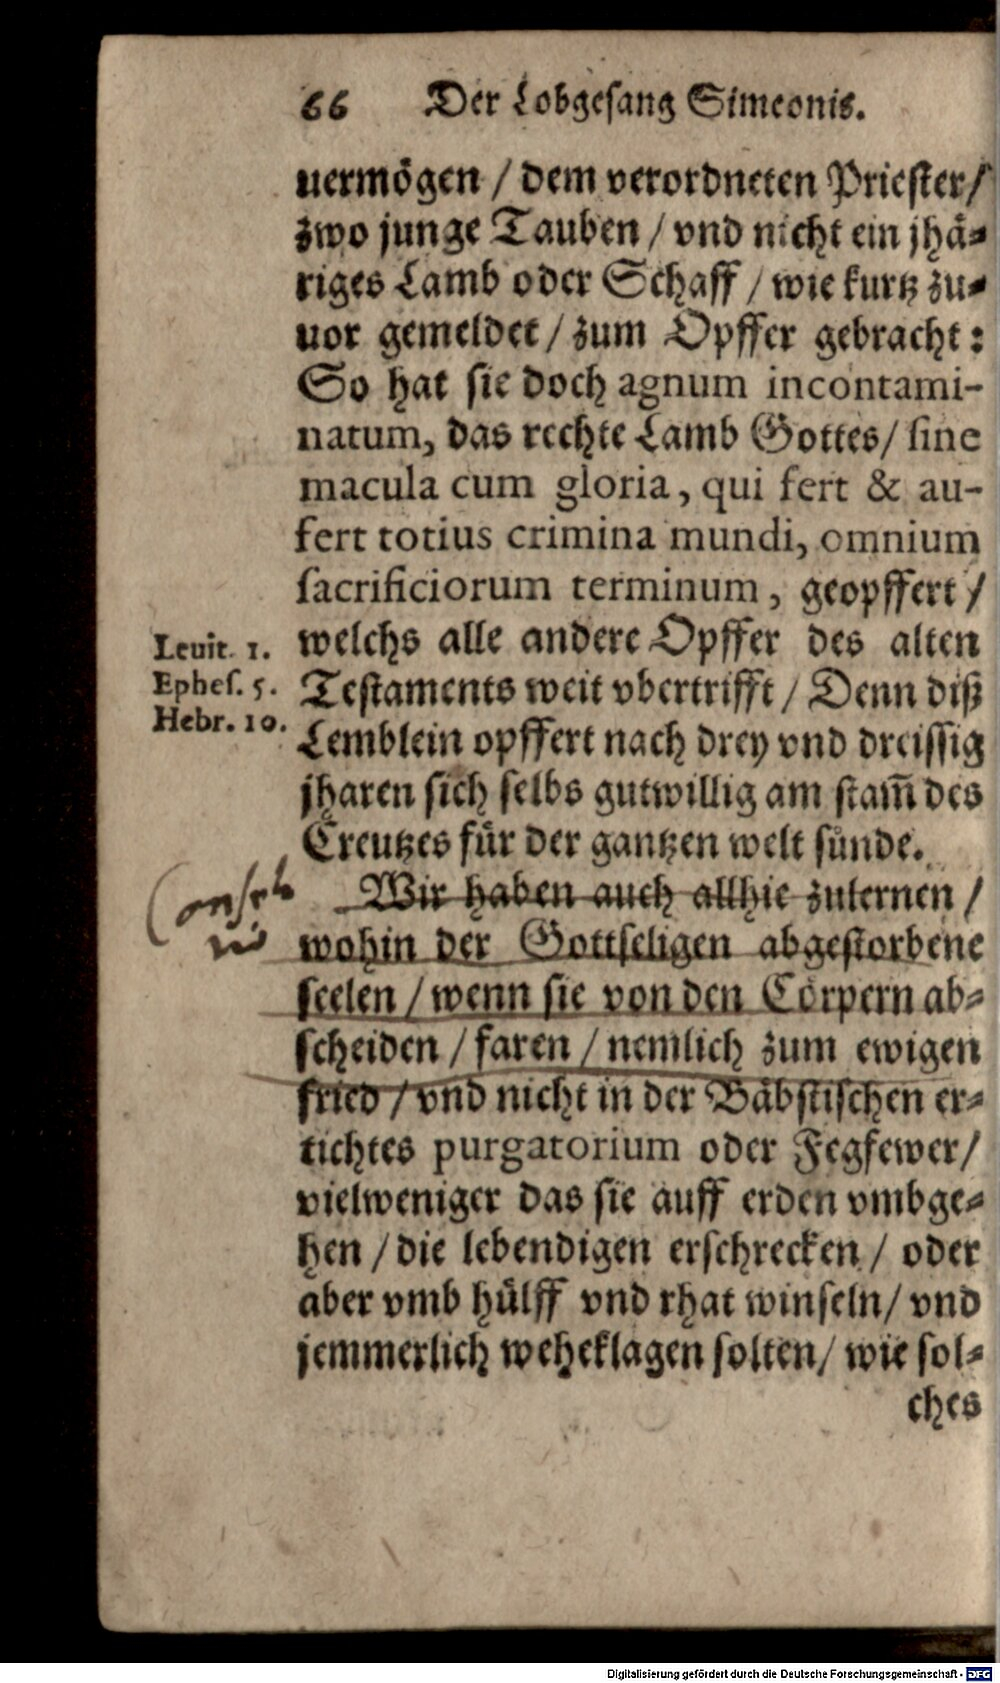 66 Der Lobgesang Simeonis.
uermögen / dem verordneten Priester /
zwo junge Tauben / vnd nicht ein jhä-
riges Lamb oder Schaff / wie kurtz zu-
uor gemeldet / zum Opffer gebracht:
So hat sie doch agnum incontami-
natum, das rechte Lamb Gottes / sine
macula cum gloria, qui fert & au-
fert totius crimina mundi, omnium
sacrificiorum terminum, geopffert /
Leuit. 1.
Ephes. 5.
Hebr. 10.
welchs alle andere Opffer des alten
Testaments weit vbertrifft / Denn diß
Lemblein opffert nach drey vnd dreissig
jharen sich selbs gutwillig am stam̃ des
Creutzes für der gantzen welt sünde.
Wir haben auch allhie zulernen /
wohin der Gottseligen abgestorbene
seelen / wenn sie von den Cörpern ab-
scheiden / faren / nemlich zum ewigen
fried / vnd nicht in der Bäbstischen er-
tichtes purgatorium oder Fegfewer /
vielweniger das sie auff erden vmbge-
hen / die lebendigen erschrecken / oder
aber vmb hülff vnd rhat winseln / vnd
jemmerlich weheklagen solten / wie sol-
ches
Digitalisierung gefördert durch die Deutsche Forschungsgemeinschaft - DFG